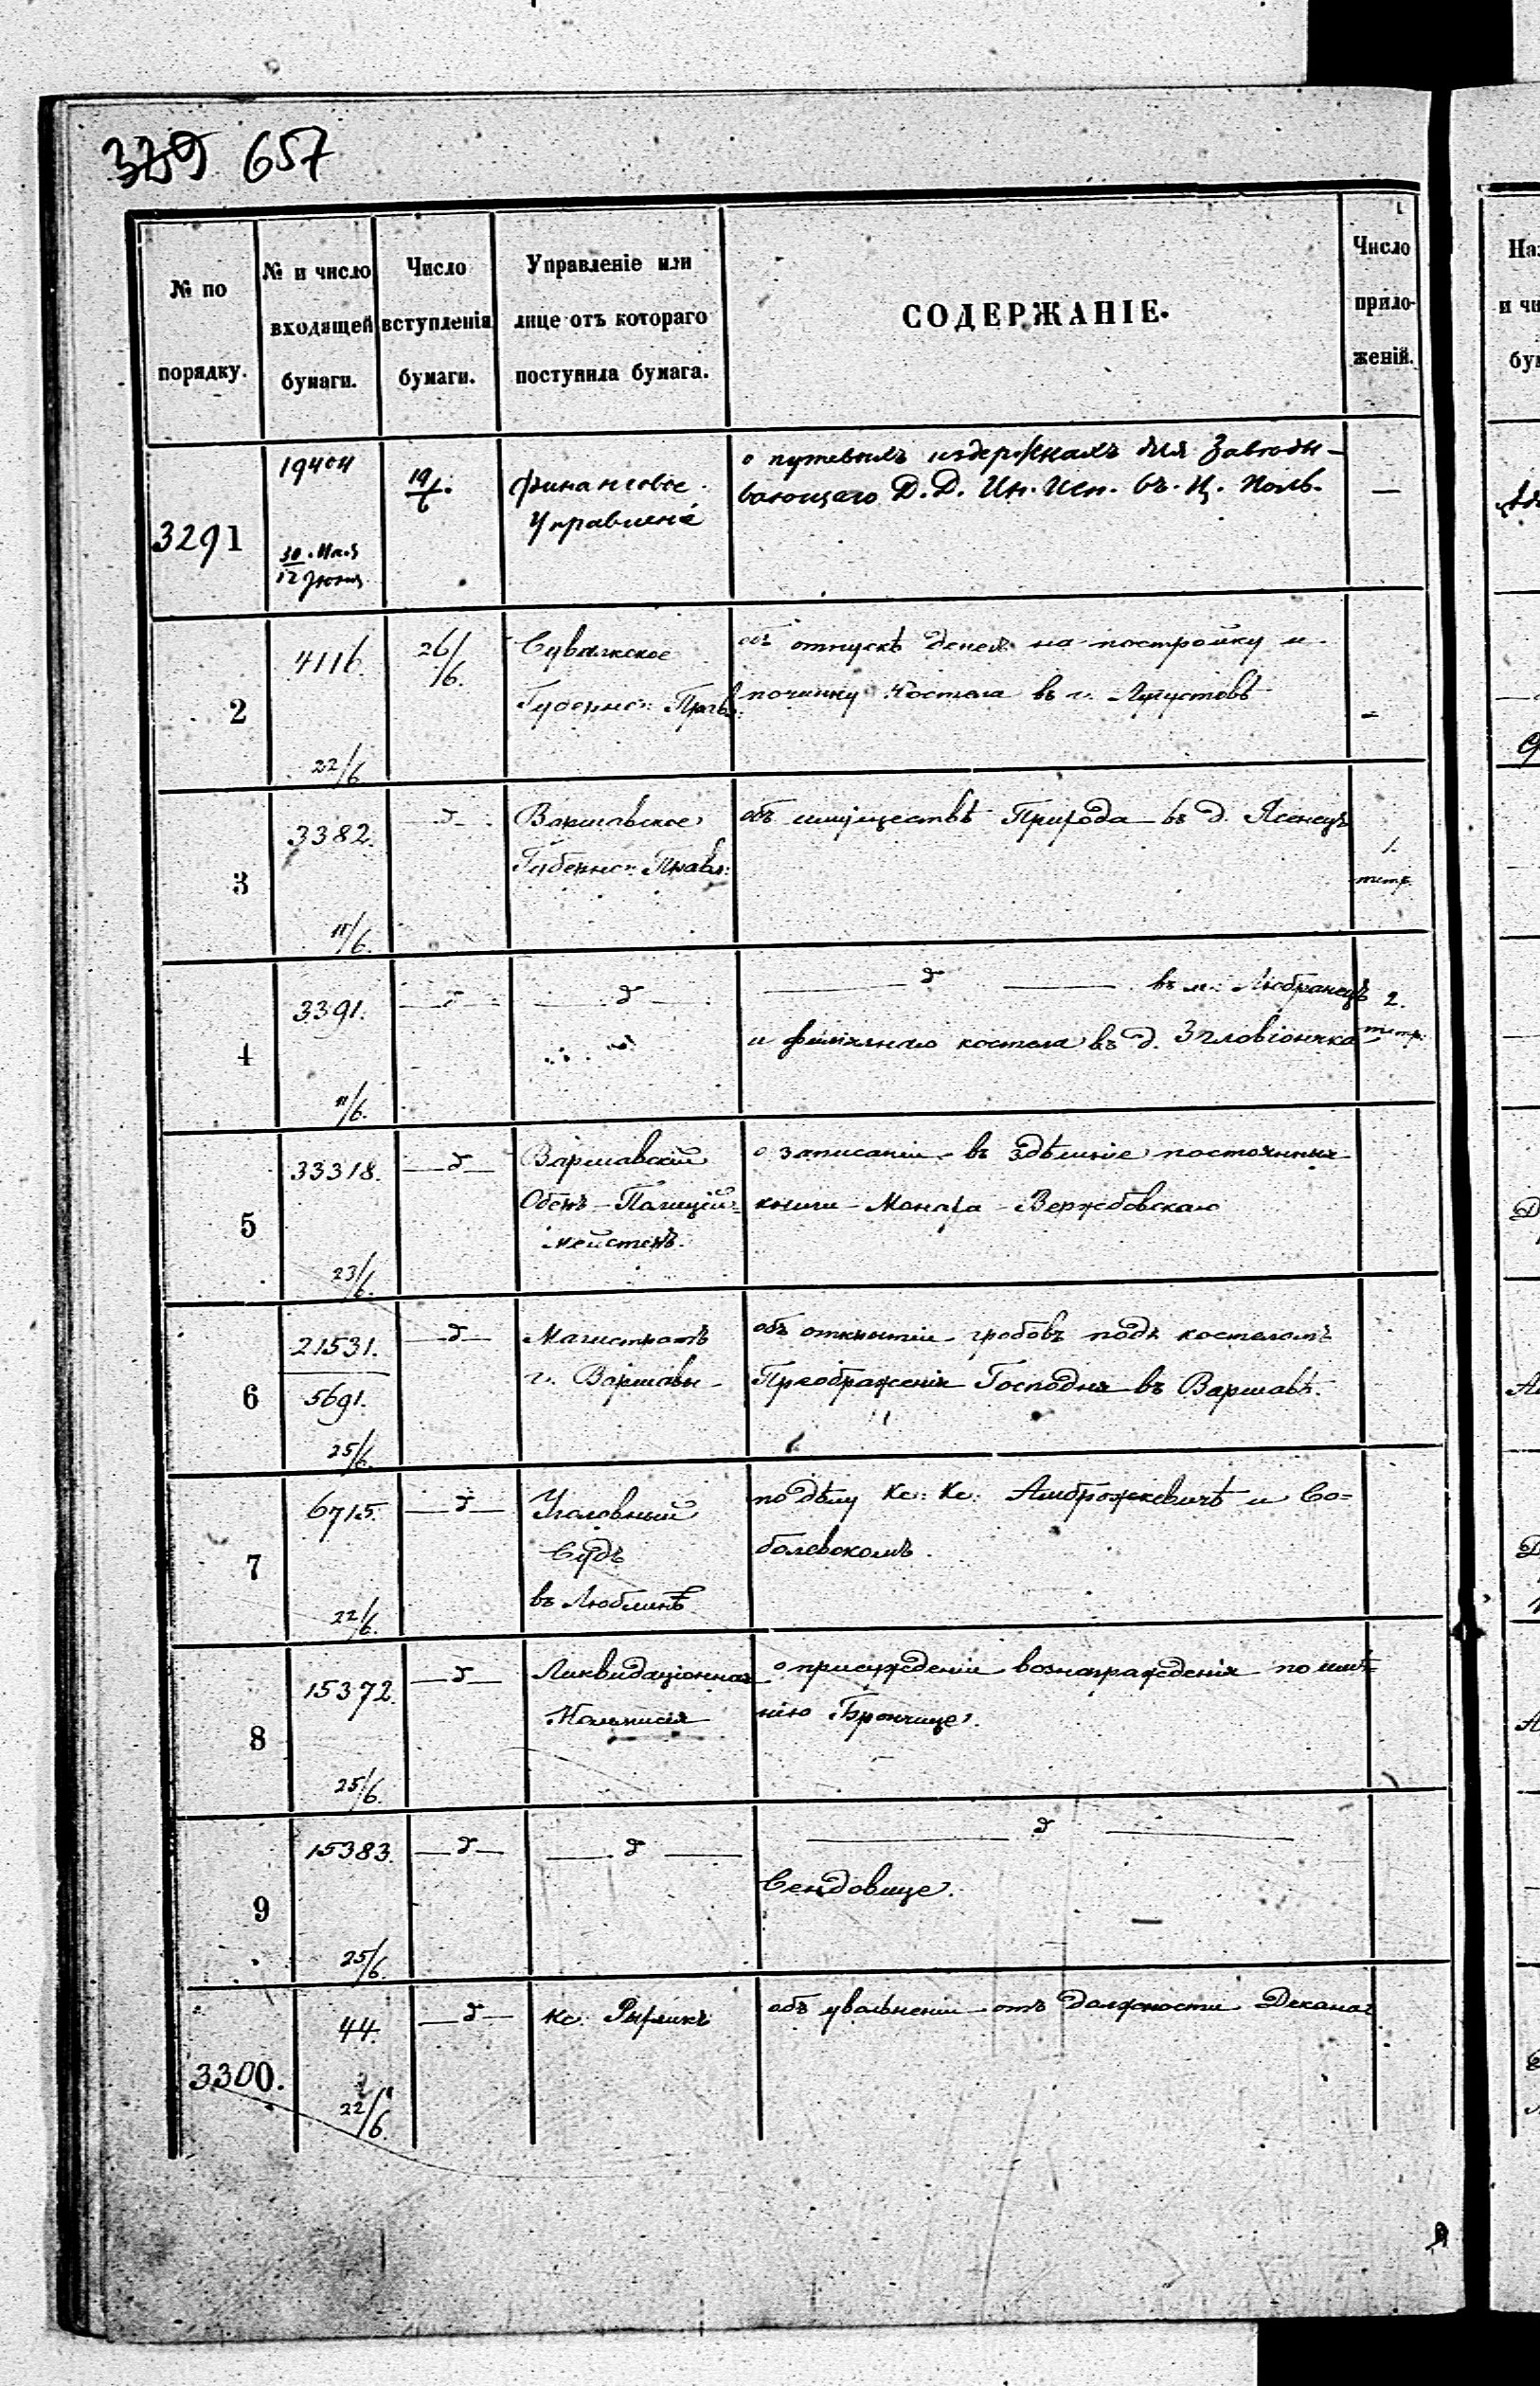 329 657
№ по порядку.
№ и число входящей бумаги.
Число вступленія бумаги.
Управленіе или лице отъ котораго поступила бумага.
СОДЕРЖАНІЕ.
Число прило-женій.
3291
19404
30 Мая
12 Іюня
19/6
Финансовое
Управленіе
о путевыхъ издержкахъ для Завѣды-
вающаго Д. Д. Ин. Исп. въ Ц. Поль.
—
2
4116.
22/6
26/6.
Сувалкское
Губернс: Правл:
объ отпускѣ денегъ на постройку и
починку Костела въ г. Августовѣ
-
3
3382.
11/6.
д
Варшавское
Губернс: Правл:
объ имуществѣ Прихода въ д. Ясенецъ
1.
тетр.
4
3391.
11/6.
—д—
—д—
—д— въ м. Любранецъ
и филіяльнаго костела въ д. Згловіончка
2.
тетр.
5
33318.
23/6.
—д—
Варшавскій
Оберъ-Полицій-
мейстеръ.
о записаніи въ здѣшніе постоянныя
книги Монаха Вержбовскаго
6
21531.
5691.
25/6.
—д—
Магистратъ
г. Варшавы
объ открытіи гробовъ подъ костеломъ
Преображенія Господня въ Варшавѣ.
7
6715.
22/6.
—д—
Уголовный
Судъ
въ Люблинѣ
по дѣлу Кс: Кс: Амброжкевичѣ и Со-
болевскомъ.
8
15372.
25/6.
—д—
Ликвидаціонная
Коммисія
о присужденіи вознагражденія по имѣ-
нію Брончице.
9
15383.
25/6.
—д—
—д—
—д—
Сендовице.
3300.
44.
22/6.
—д—
Кс. Рыхликъ
объ увольненіи отъ должности Декана